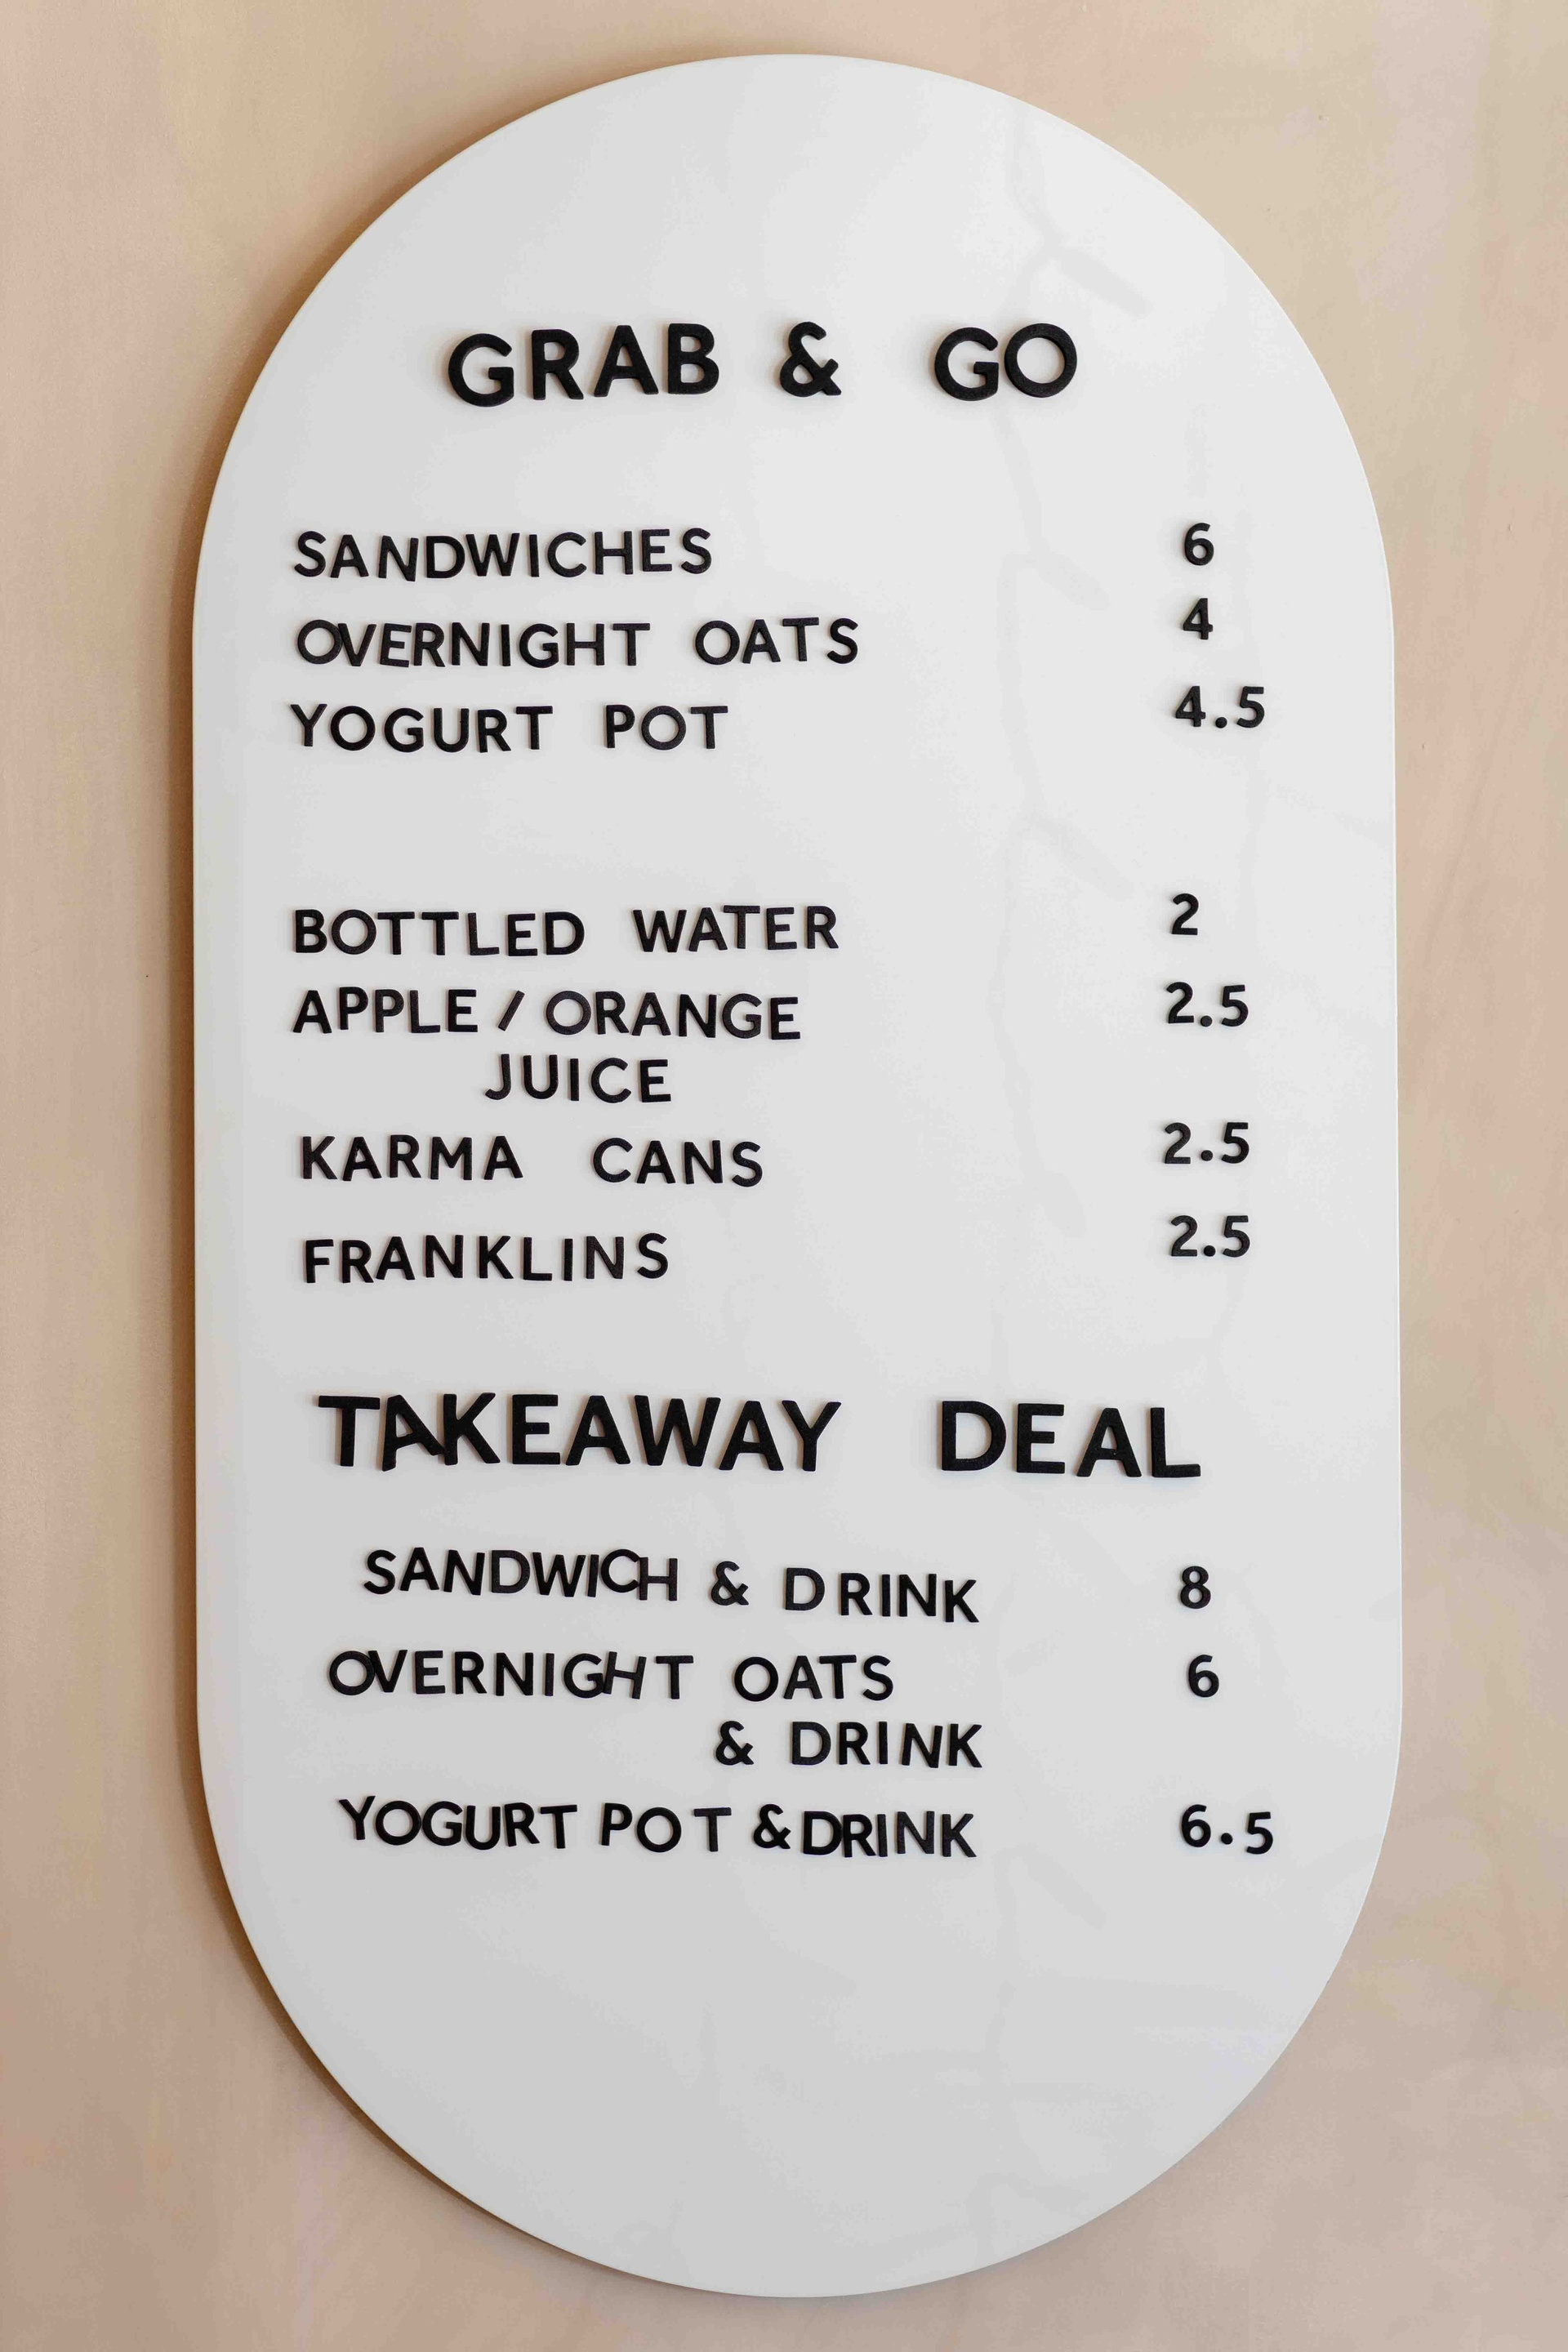 GRAB & GO
SANDWICHES 6
OVERNIGHT OATS 4
YOGURT POT 4.5
BOTTLED WATER 2
APPLE / ORANGE 2.5
JUICE
KARMA CANS 2.5
FRANKLINS 2.5
TAKEAWAY DEAL
SANDWICH & DRINK 8
OVERNIGHT OATS 6
& DRINK
YOGURT POT & DRINK 6.5